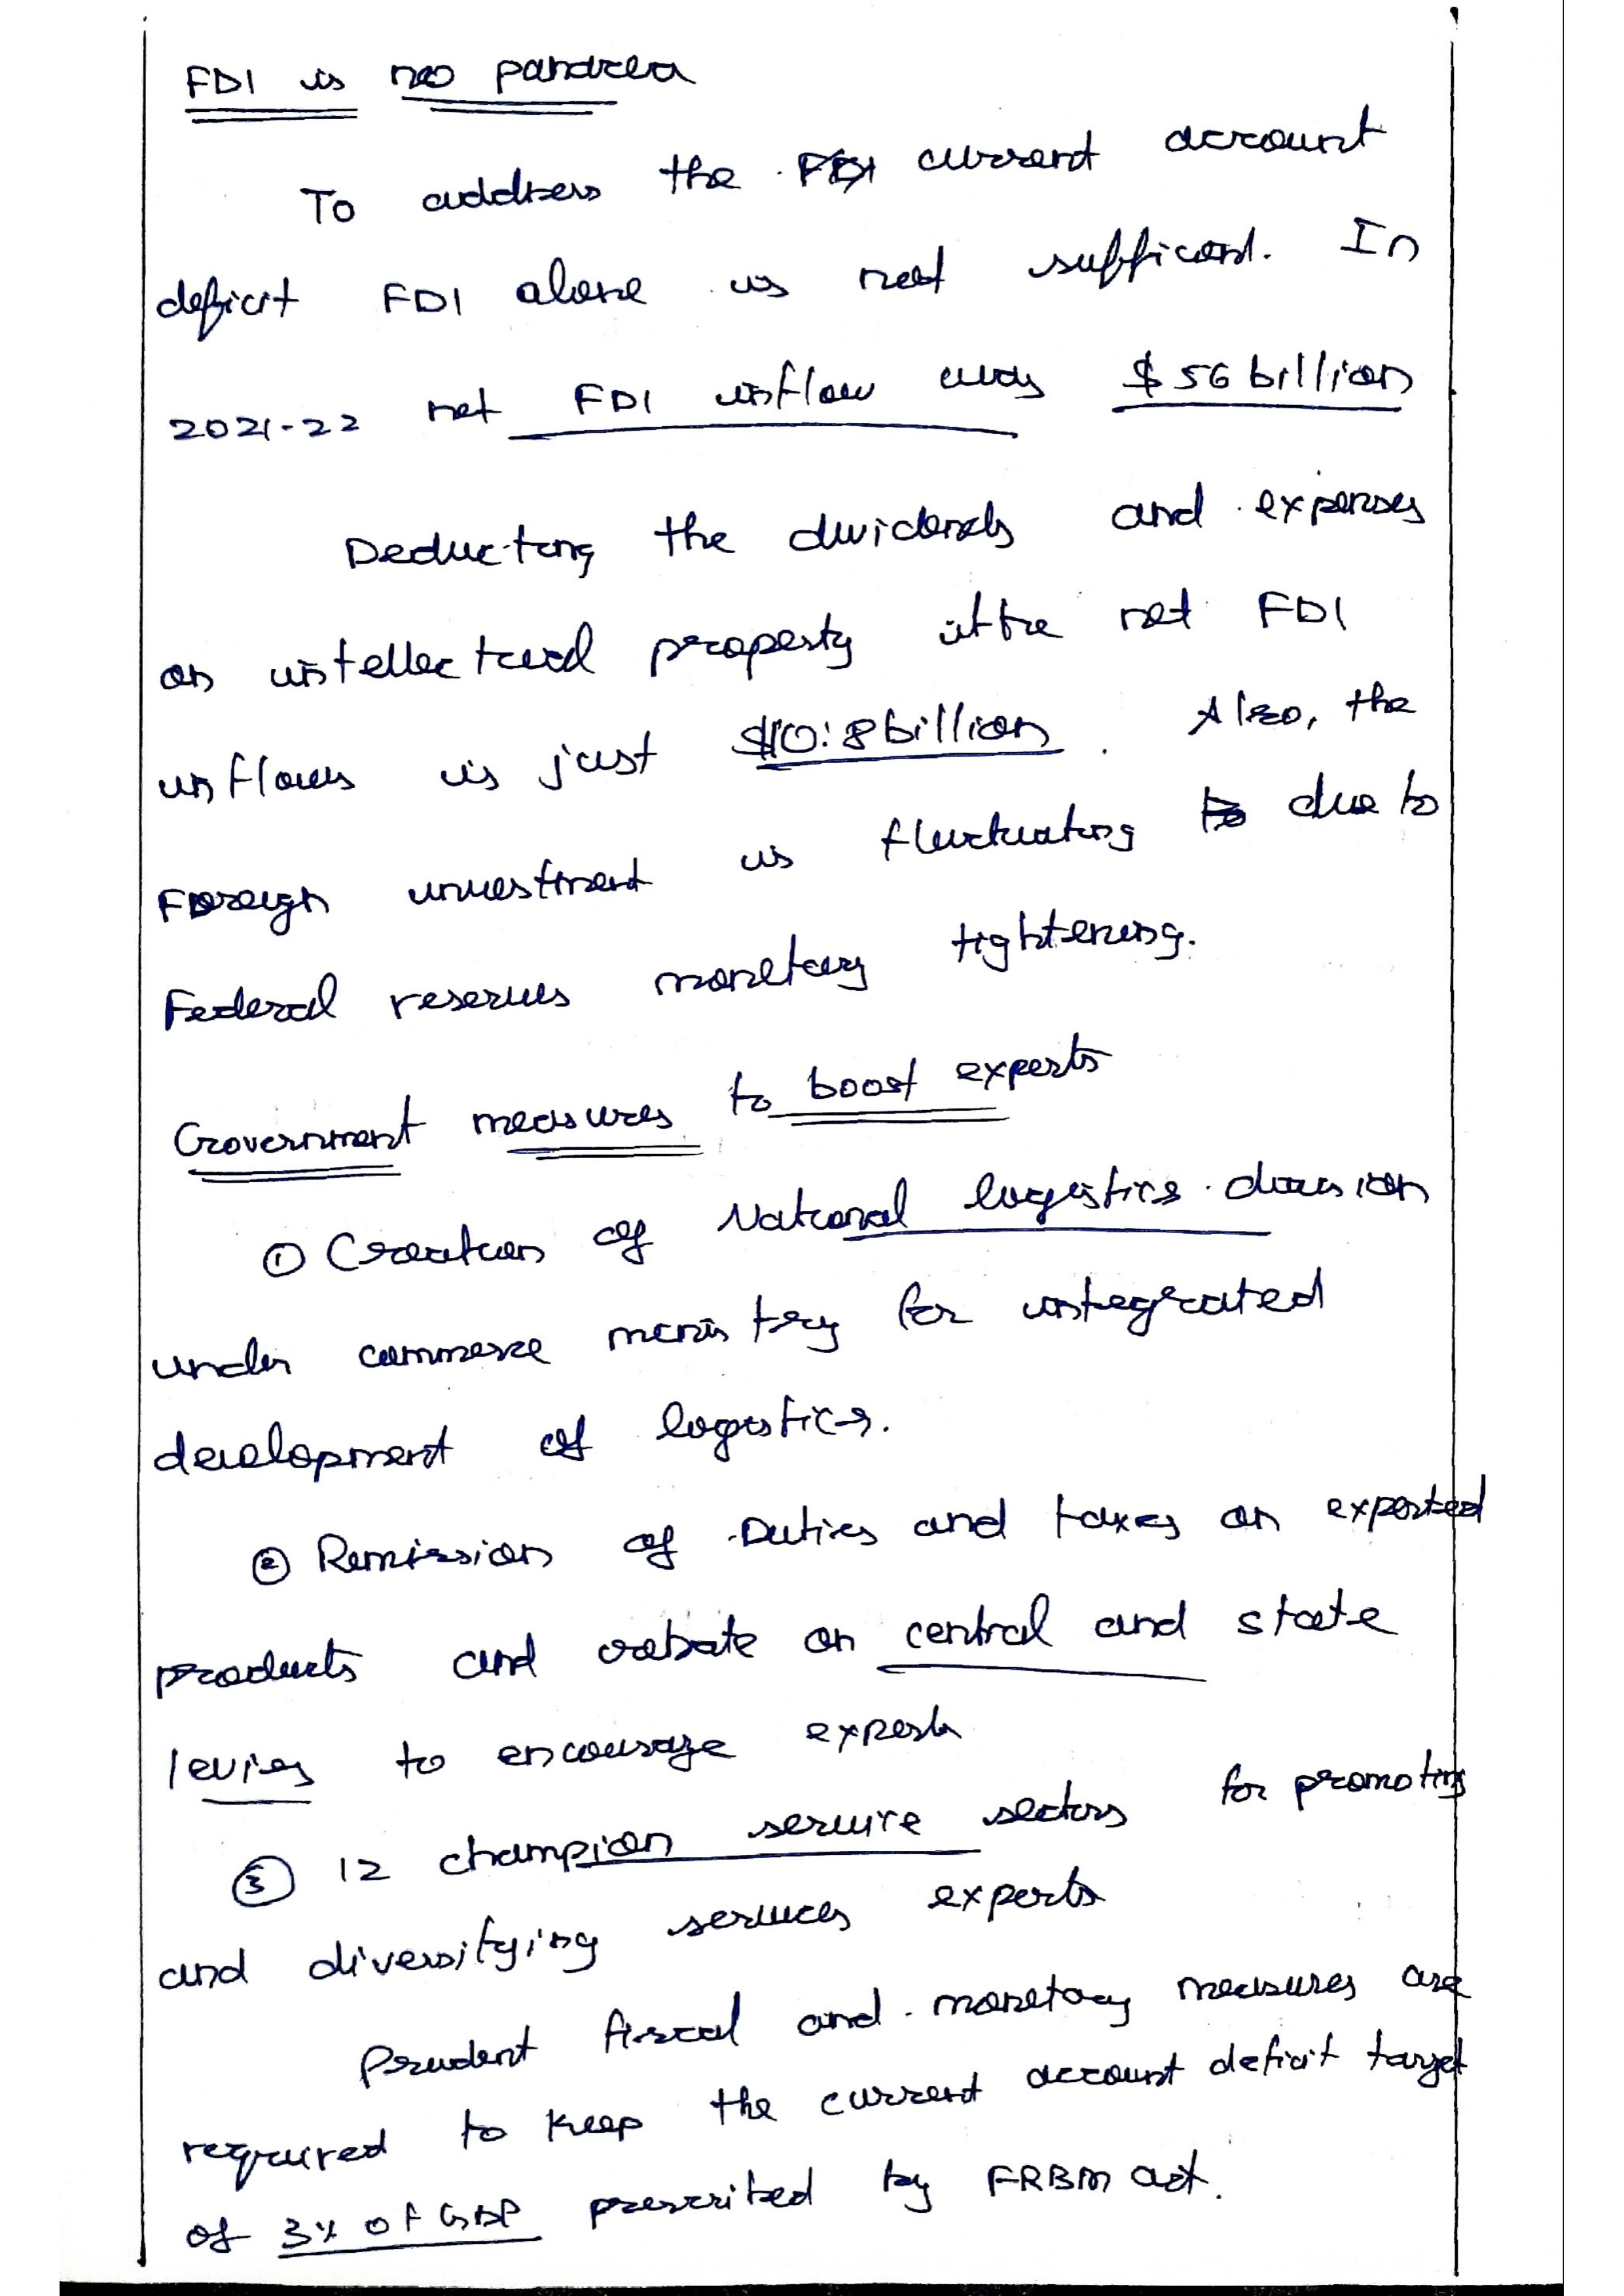 FDI is no panacea
To address the current account
deficit FDI alone is not sufficant. In
2021-22 net FDI inflow was $56 billion
Deducting the dividends and expenses
on intellectual property the net FDI
inflows is just $10.8 billion. Also, the
Foreign investment is fluctuating due to
Federal reserves monetary tightening.
Government measures to boost exports
① Creation of National logistics division
under commerce ministry for integrated
development of logistics.
② Remission of Duties and taxes on exported
products and rebate on central and state
levies to encourage exports
③ 12 champion service sectors for promoting
and diversifying services exports
Prudent fiscal and monetary measures are
required to keep the current account deficit target
of 3% of GDP prescribed by FRBM act.